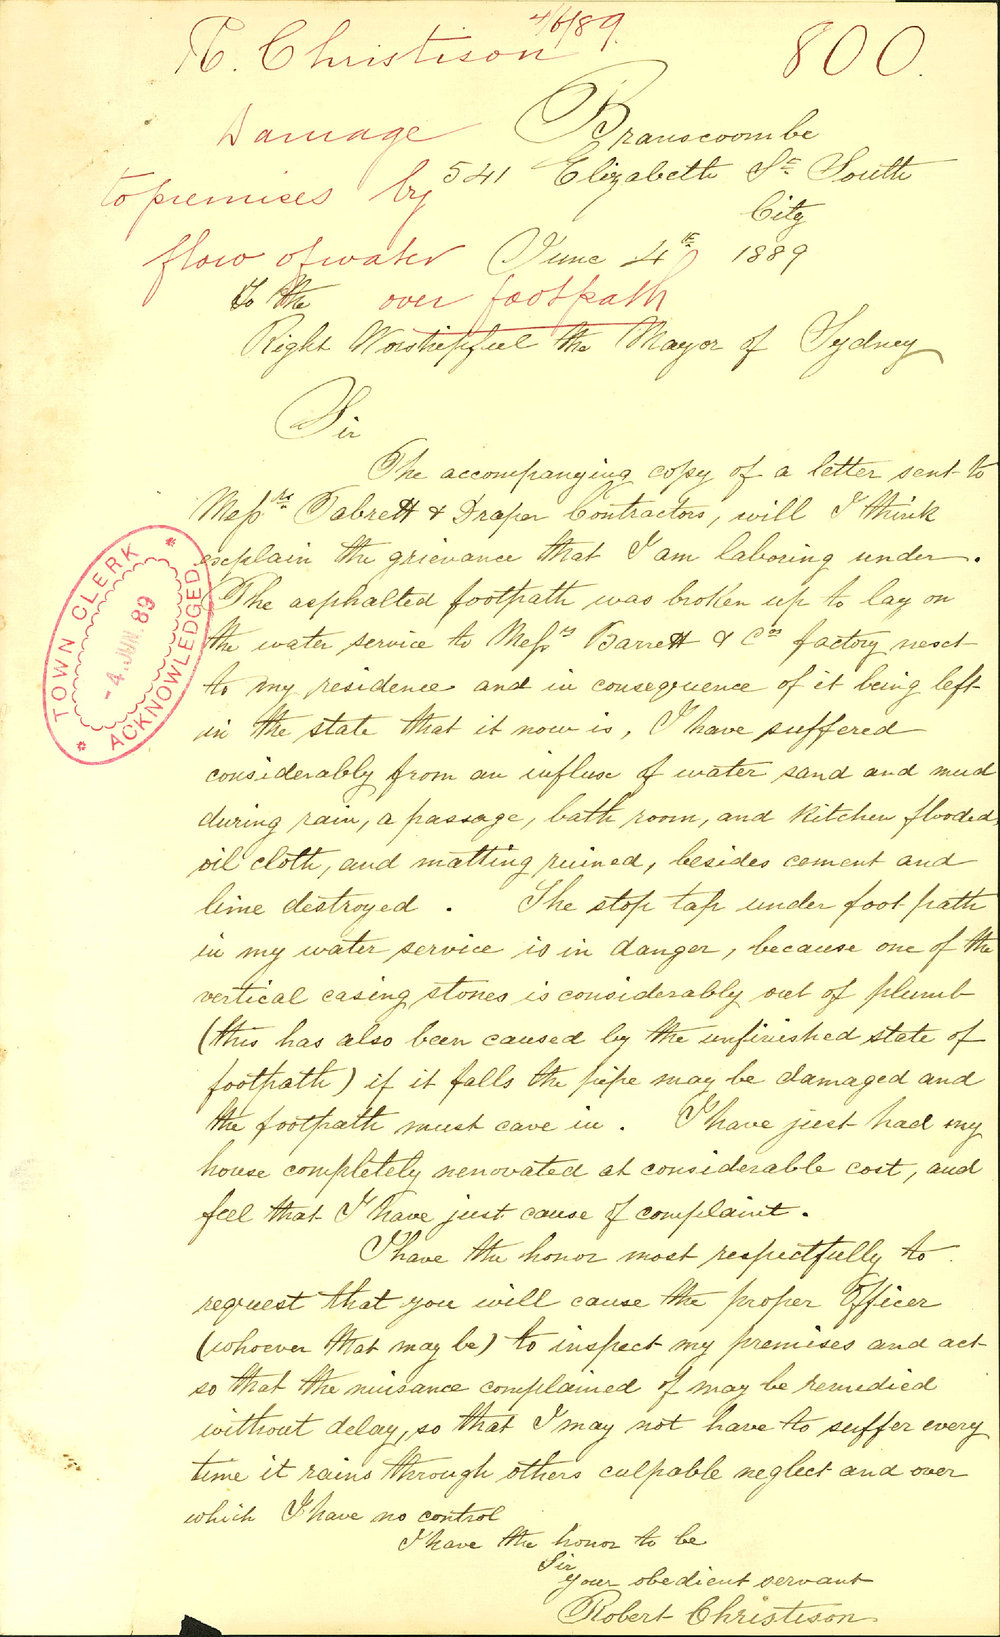 4/6/89
R. Christison
800.
Damage
to premises by
flow of water
over footpath
Branscoombe
541 Elizabeth St South
City
June 4th 1889
To the
Right Worshipful the Mayor of Sydney
Sir
The accompanying copy of a letter sent to
Messrs Tabrett & Draper Contractors, will I think
explain the grievance that I am laboring under.
The asphalted footpath was broken up to lay on
the water service to Messrs Barrett & Cos factory next
to my residence and in consequence of it being left
in the state that it now is, I have suffered
considerably from an influx of water sand and mud
during rain, a passage, bath room, and kitchen flooded,
oil cloth, and matting ruined, besides cement and
lime destroyed. The stop tap under foot path
in my water service is in danger, because one of the
vertical casing stones is considerably out of plumb
(this has also been caused by the unfinished state of
footpath) if it falls the pipe may be damaged and
the footpath must cave in. I have just had my
house completely renovated at considerable cost, and
feel that I have just cause of complaint.
I have the honor most respectfully to
request that you will cause the proper Officer
(whoever that may be) to inspect my premises and act
so that the nuisance complained of may be remedied
without delay, so that I may not have to suffer every
time it rains through others culpable neglect and over
which I have no control
I have the honor to be
Sir
your obedient servant
Robert Christison
TOWN CLERK
-4. JUN. 89
ACKNOWLEDGED